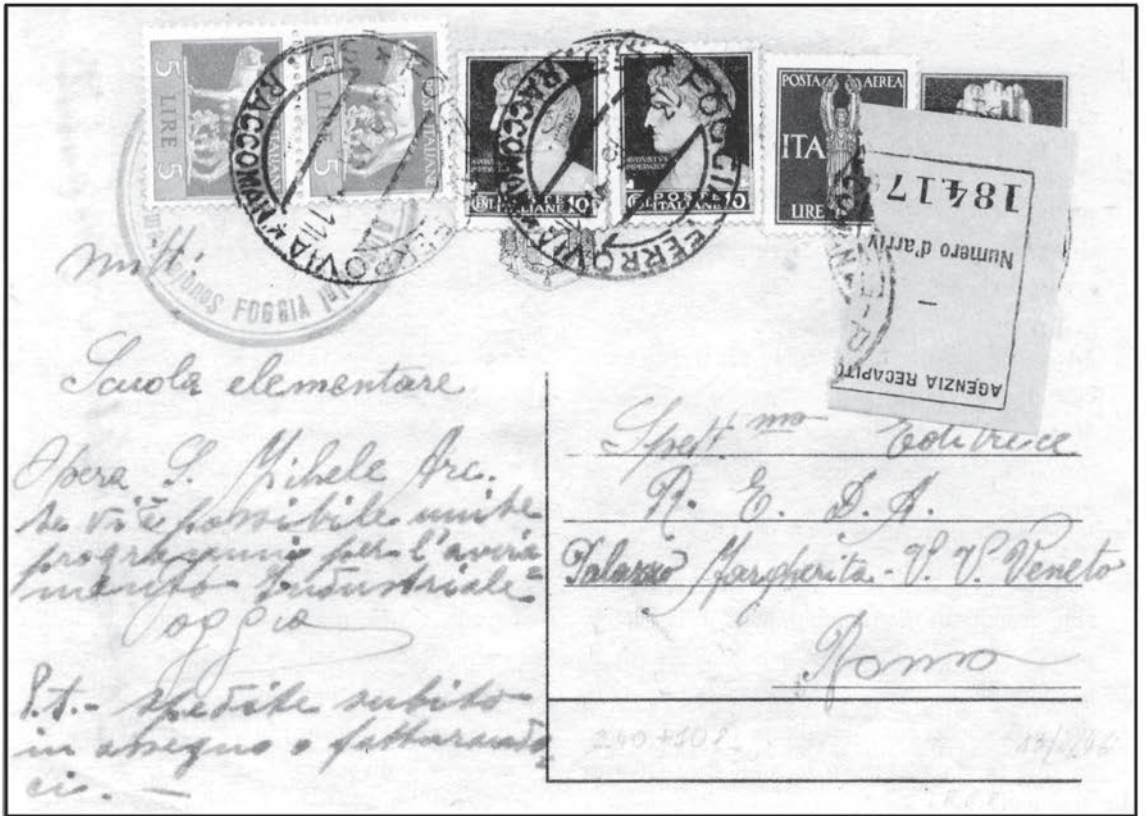 5 LIRE 5
5 LIRE 5
POSTE ITALIANE
AVGVSTVS
CENT. 10
POSTE ITALIANE 10
POSTA AEREA
ITA
LIRE
FOGGIA FERROVIA
RACCOMAND
FOGGIA
184.17
Numero d'arriv
AGENZIA RECAPITO
mitt:
Scuola elementare
Opera S. Mihele Arc.
Se vi è possibile unite
programmi per l'avvia
mento Industriale=
Foggia
P.t.- spedite subito
in assegno o fatturando
ci. —
Spett.mo Editrice
R. E. D. A.
Palazzo Margherita - V. V. Veneto
Roma
240+108